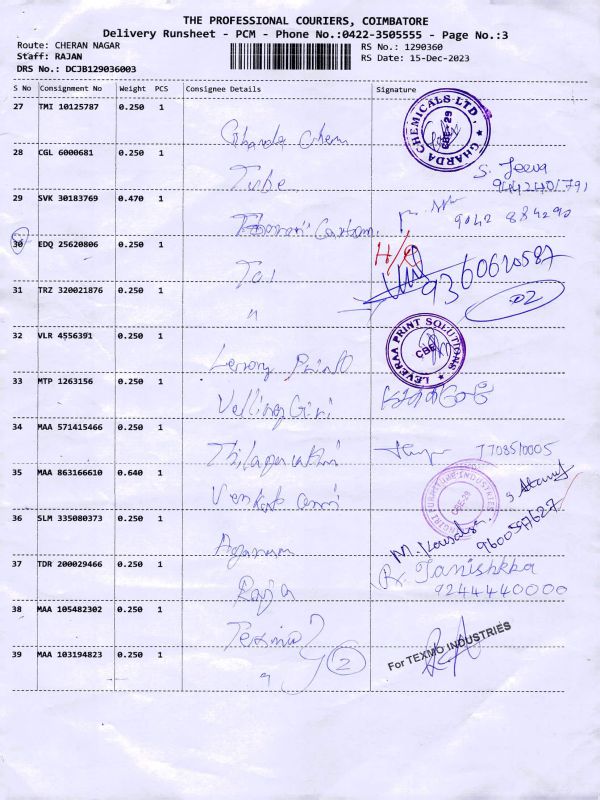 THE PROFESSIONAL COURIERS, COIMBATORE
Delivery Runsheet - PCM - Phone No.:0422-3505555 - Page No.:3
Route: CHERAN NAGAR
RS No.: 1290360
Staff: RAJAN
RS Date: 15-Dec-2023
DRS No.: DCJB129036003
S No Consignment No Weight PCS Consignee Details Signature
27 TMI 10125787 0.250 1
Gharda Chem
GHARDA CHEMICALS LTD. CBE-29
28 CGL 6000681 0.250 1
Tube
S. Jeeva
9442401791
29 SVK 30183769 0.470 1
9042 884290
30 EDQ 25620806 0.250 1
H/O
9360620587
02
31 TRZ 320021876 0.250 1
"
32 VLR 4556391 0.250 1
LEVERAA PRINT SOLUTIONS CBE
33 MTP 1263156 0.250 1
Velling Giri
34 MAA 571415466 0.250 1
7708510005
35 MAA 863166610 0.640 1
NGIRI FURNITURE INDUSTRIES CBE-29
36 SLM 335080373 0.250 1
M. Kousalya
9600597627
37 TDR 200029466 0.250 1
Raja
R. Tanishkka
9244440000
38 MAA 105482302 0.250 1
Texmo
2
For TEXMO INDUSTRIES
39 MAA 103194823 0.250 1
"